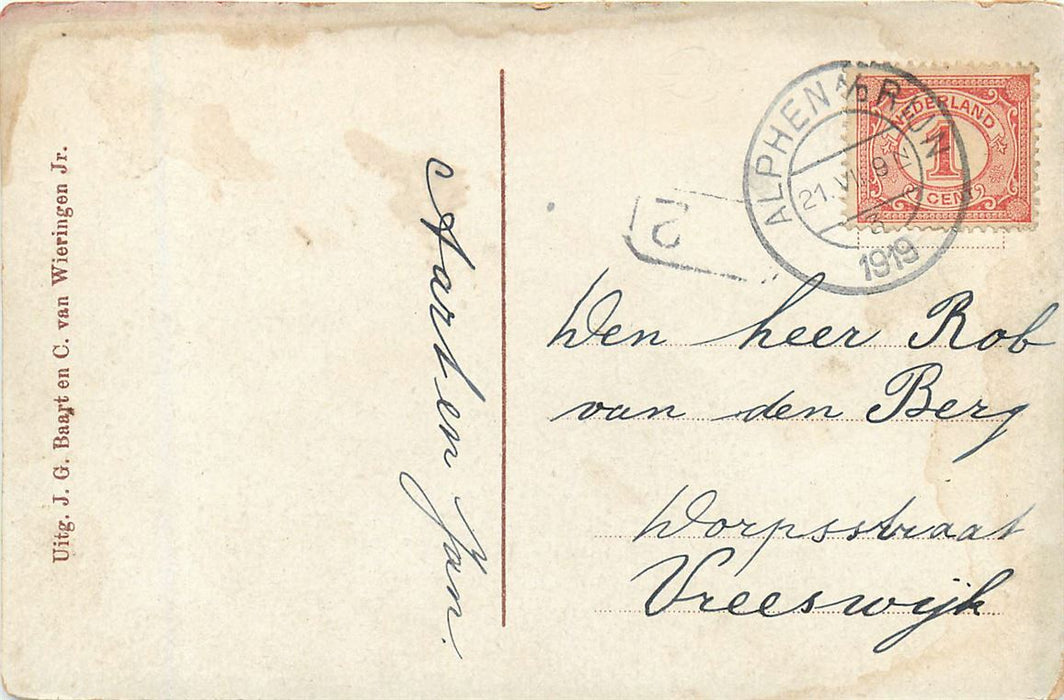 Uitg. J. G. Baart en C. van Wieringen Jr.
Aart en Jan.
ALPHEN A/D RIJN
21.VI. 9
1919
NEDERLAND
1
CENT
2
Den heer Rob
van den Berg
Dorpsstraat
Vreeswijk